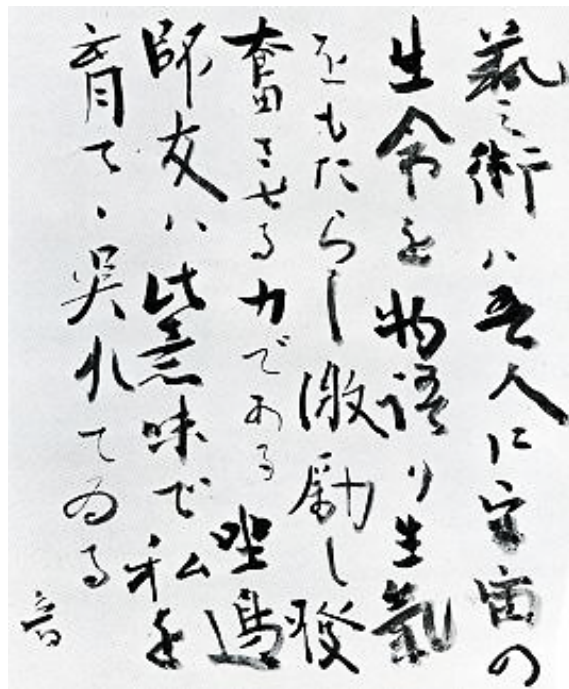 藝術ハ吾人に宇宙の
生命を物語り生氣
をもたらし激励し發
奮させる力である
師友ハ此意味で私を
育てゝ呉れてゐる
音